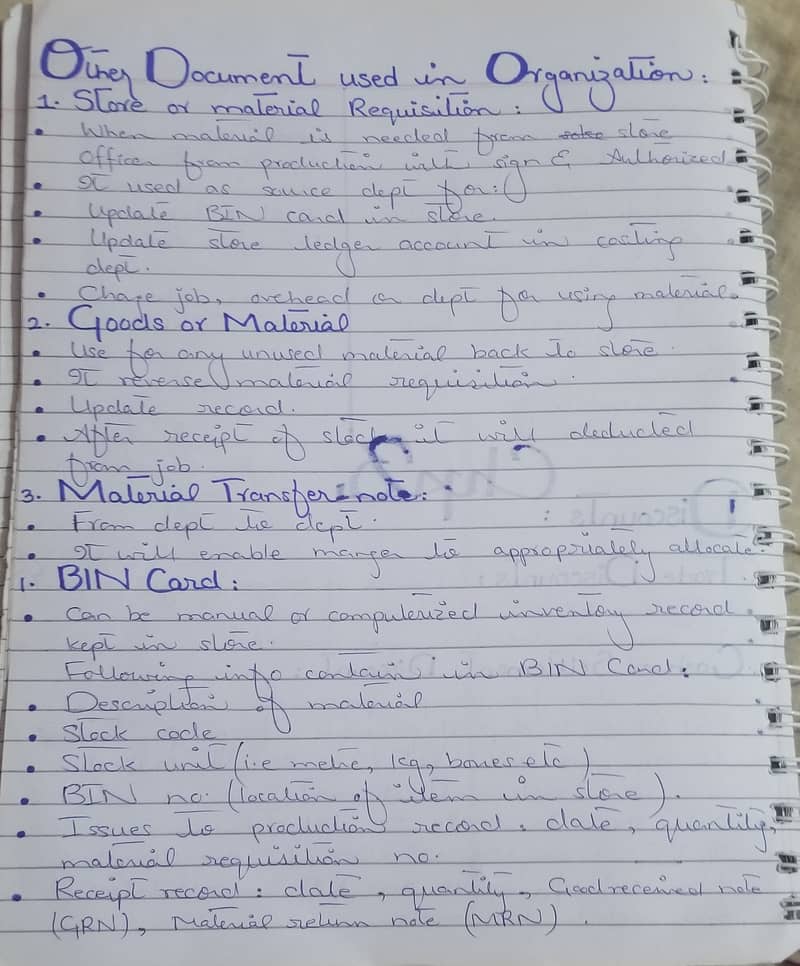 Other Document used in Organization:
1. Store or material Requisition:
• When material is needed from store
officer from production with sign & Authorized
• It used as source dept for:
• Update BIN card in store.
• Update store ledger account in costing
dept.
• Charge job, overhead or dept for using material.
2. Goods or Material
• Use for any unused material back to store.
• It reverse material requisition.
• Update record.
• After receipt of stock it will deducted
from job.
3. Material Transfer-note:
• From dept to dept.
• It will enable manger to appropriately allocate.
1. BIN Card:
• Can be manual or computerized inventory record
kept in store.
Following info contain in BIN Card:
• Description of material
• Stock code
• Stock unit (i.e metre, kg, boxes etc)
• BIN no. (location of item in store).
• Issues to production record: date, quantity,
material requisition no.
• Receipt record: date, quantity, Good received note
(GRN), Material return note (MRN).